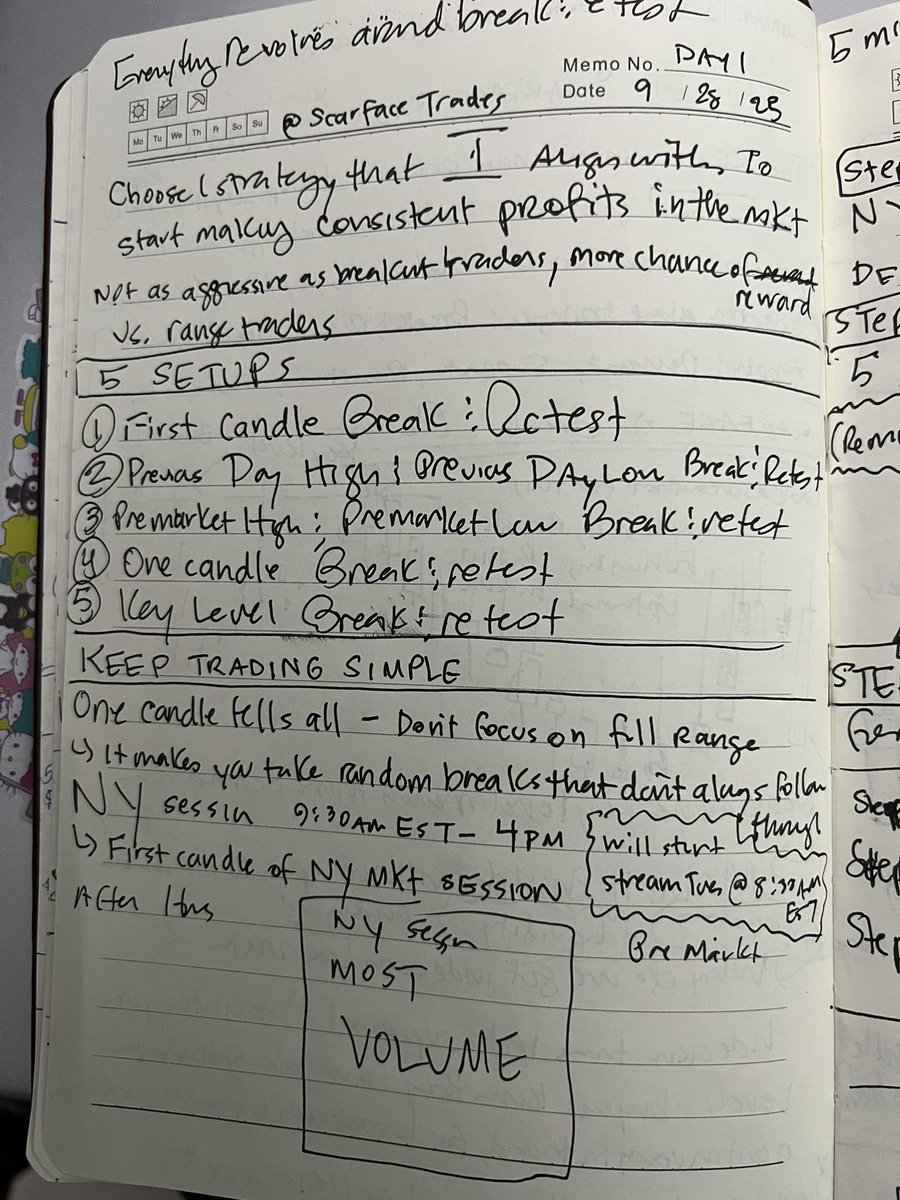 Everythg Revolves around break & retest
Memo No. DAY 1
Date 9 / 28 / 23
Mo Tu We Th Fr Sa Su
@ Scarface Trades
Choose 1 strategy that I Align with to
start making consistent profits in the mkt
Not as aggressive as breakout traders, more chance of
reward
vs. range traders
5 SETUPS
① First Candle Break & Retest
② Previous Day High & Previous DAy Low Break & Retest
③ Premarket High & Premarket Low Break & retest
④ One candle Break & retest
⑤ Key Level Break & retest
KEEP TRADING SIMPLE
One candle tells all - Don't focus on full Range
↳ It makes you take random breaks that don't always follow
through
NY session 9:30AM EST - 4PM
will start
stream Tues @ 8:30AM
EST
↳ First candle of NY Mkt SESSION
After Hrs
Pre Market
NY sessn
MOST
VOLUME
5 m
Ste
NY
DE
STEP
5
(Rem
STE
Ste
Step
Step